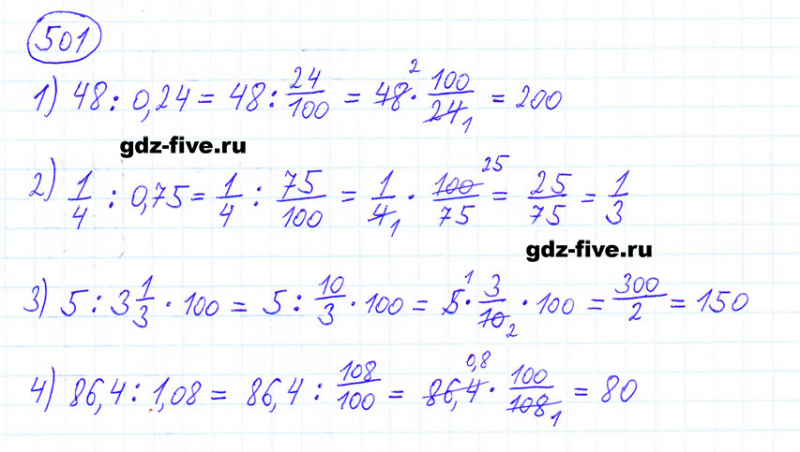 501
1) 48 : 0,24 = 48 : 24/100 = 48 2 · 100/24 1 = 200
gdz-five.ru
2) 1/4 : 0,75 = 1/4 : 75/100 = 1/4 1 · 100 25/75 = 25/75 = 1/3
gdz-five.ru
3) 5 : 3 1/3 · 100 = 5 : 10/3 · 100 = 5 1 · 3/10 2 · 100 = 300/2 = 150
4) 86,4 : 1,08 = 86,4 : 108/100 = 86,4 0,8 · 100/108 1 = 80